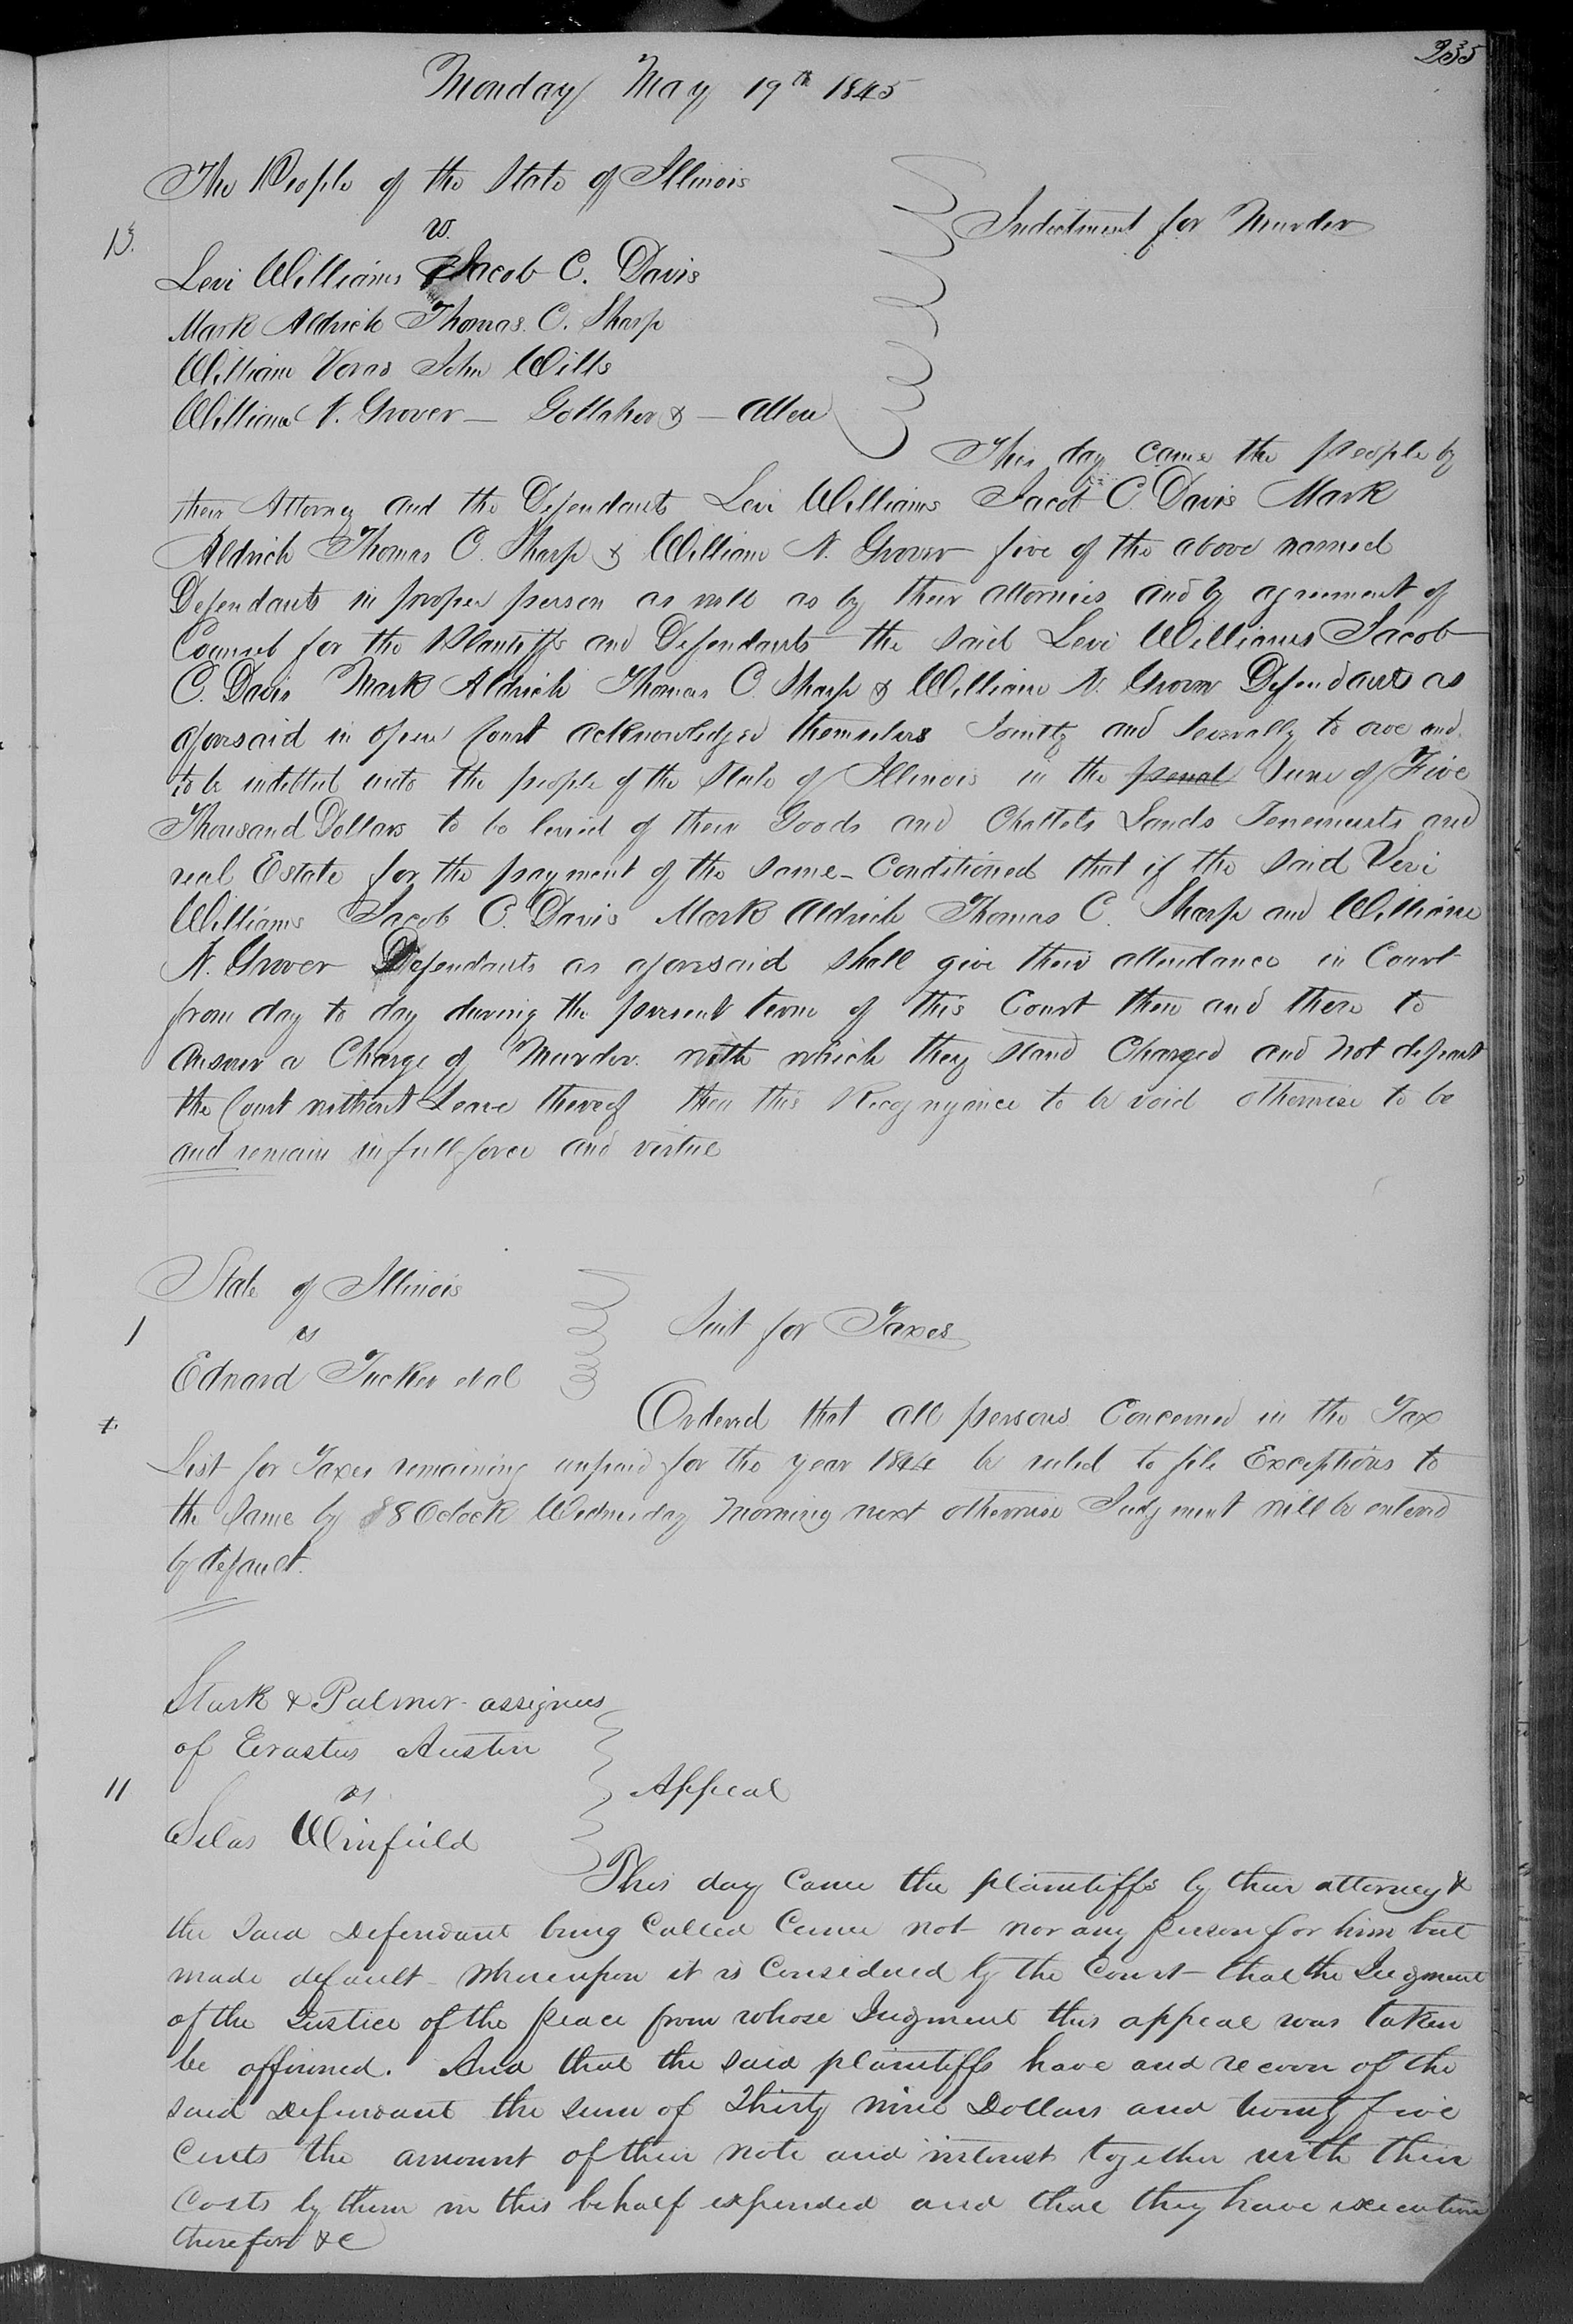 235
Monday May 19th 1845
The People of the State of Illinois
vs.
Indictment for Murder
13.
Levi Williams Jacob C. Davis
Mark Aldrich Thomas C. Sharp
William Voras John Wills
William N. Grover — Gollaher & — Allen
This day came the people by
their Attorney and the Defendants Levi Williams Jacob C. Davis Mark
Aldrich Thomas C. Sharp & William N. Grover five of the above named
Defendants in proper person as well as by their attornies and by agreement of
Counsel for the Plaintiffs and Defendants the said Levi Williams Jacob
C. Davis Mark Aldrich Thomas C. Sharp & William N. Grover Defendants as
aforesaid in open Court acknowledged themselves Jointly and Severally to owe and
to be indebted unto the people of the State of Illinois in the penal Sum of Five
Thousand Dollars to be levied of their Goods and Chattels Lands Tenements and
real Estate for the payment of the same - Conditioned that if the said Levi
Williams Jacob C. Davis Mark Aldrich Thomas C. Sharp and William
N. Grover Defendants as aforesaid shall give their attendance in Court
from day to day during the present term of this Court then and there to
answer a Charge of Murder with which they stand Charged and not depart
the Court without Leave thereof then this Recognyance to be void otherwise to be
and remain in full force and virtue
State of Illinois
1
vs
Suit for Taxes
Edward Tucker et al
Ordered that all persons Concerned in the Tax
List for Taxes remaining unpaid for the year 1844 be ruled to file Exceptions to
the Same by 8 Oclock Wednesday morning next otherwise Judgment will be entered
by default.
Stark & Palmer assignees
of Erastus Austin
11
vs
Appeal
Silas Winfield
This day Came the plaintiffs by their attorney &
the said Defendant being Called Came not nor any person for him but
made default - Whereupon it is Considered by the Court - that the Judgment
of the Justice of the peace from whose Judgment this appeal was taken
be affirmed. And that the said plaintiffs have and recover of the
said Defendant the sum of Thirty nine Dollars and twenty five
Cents the amount of their note and interest together with their
Costs by them in this behalf expended and that they have execution
therefor &C